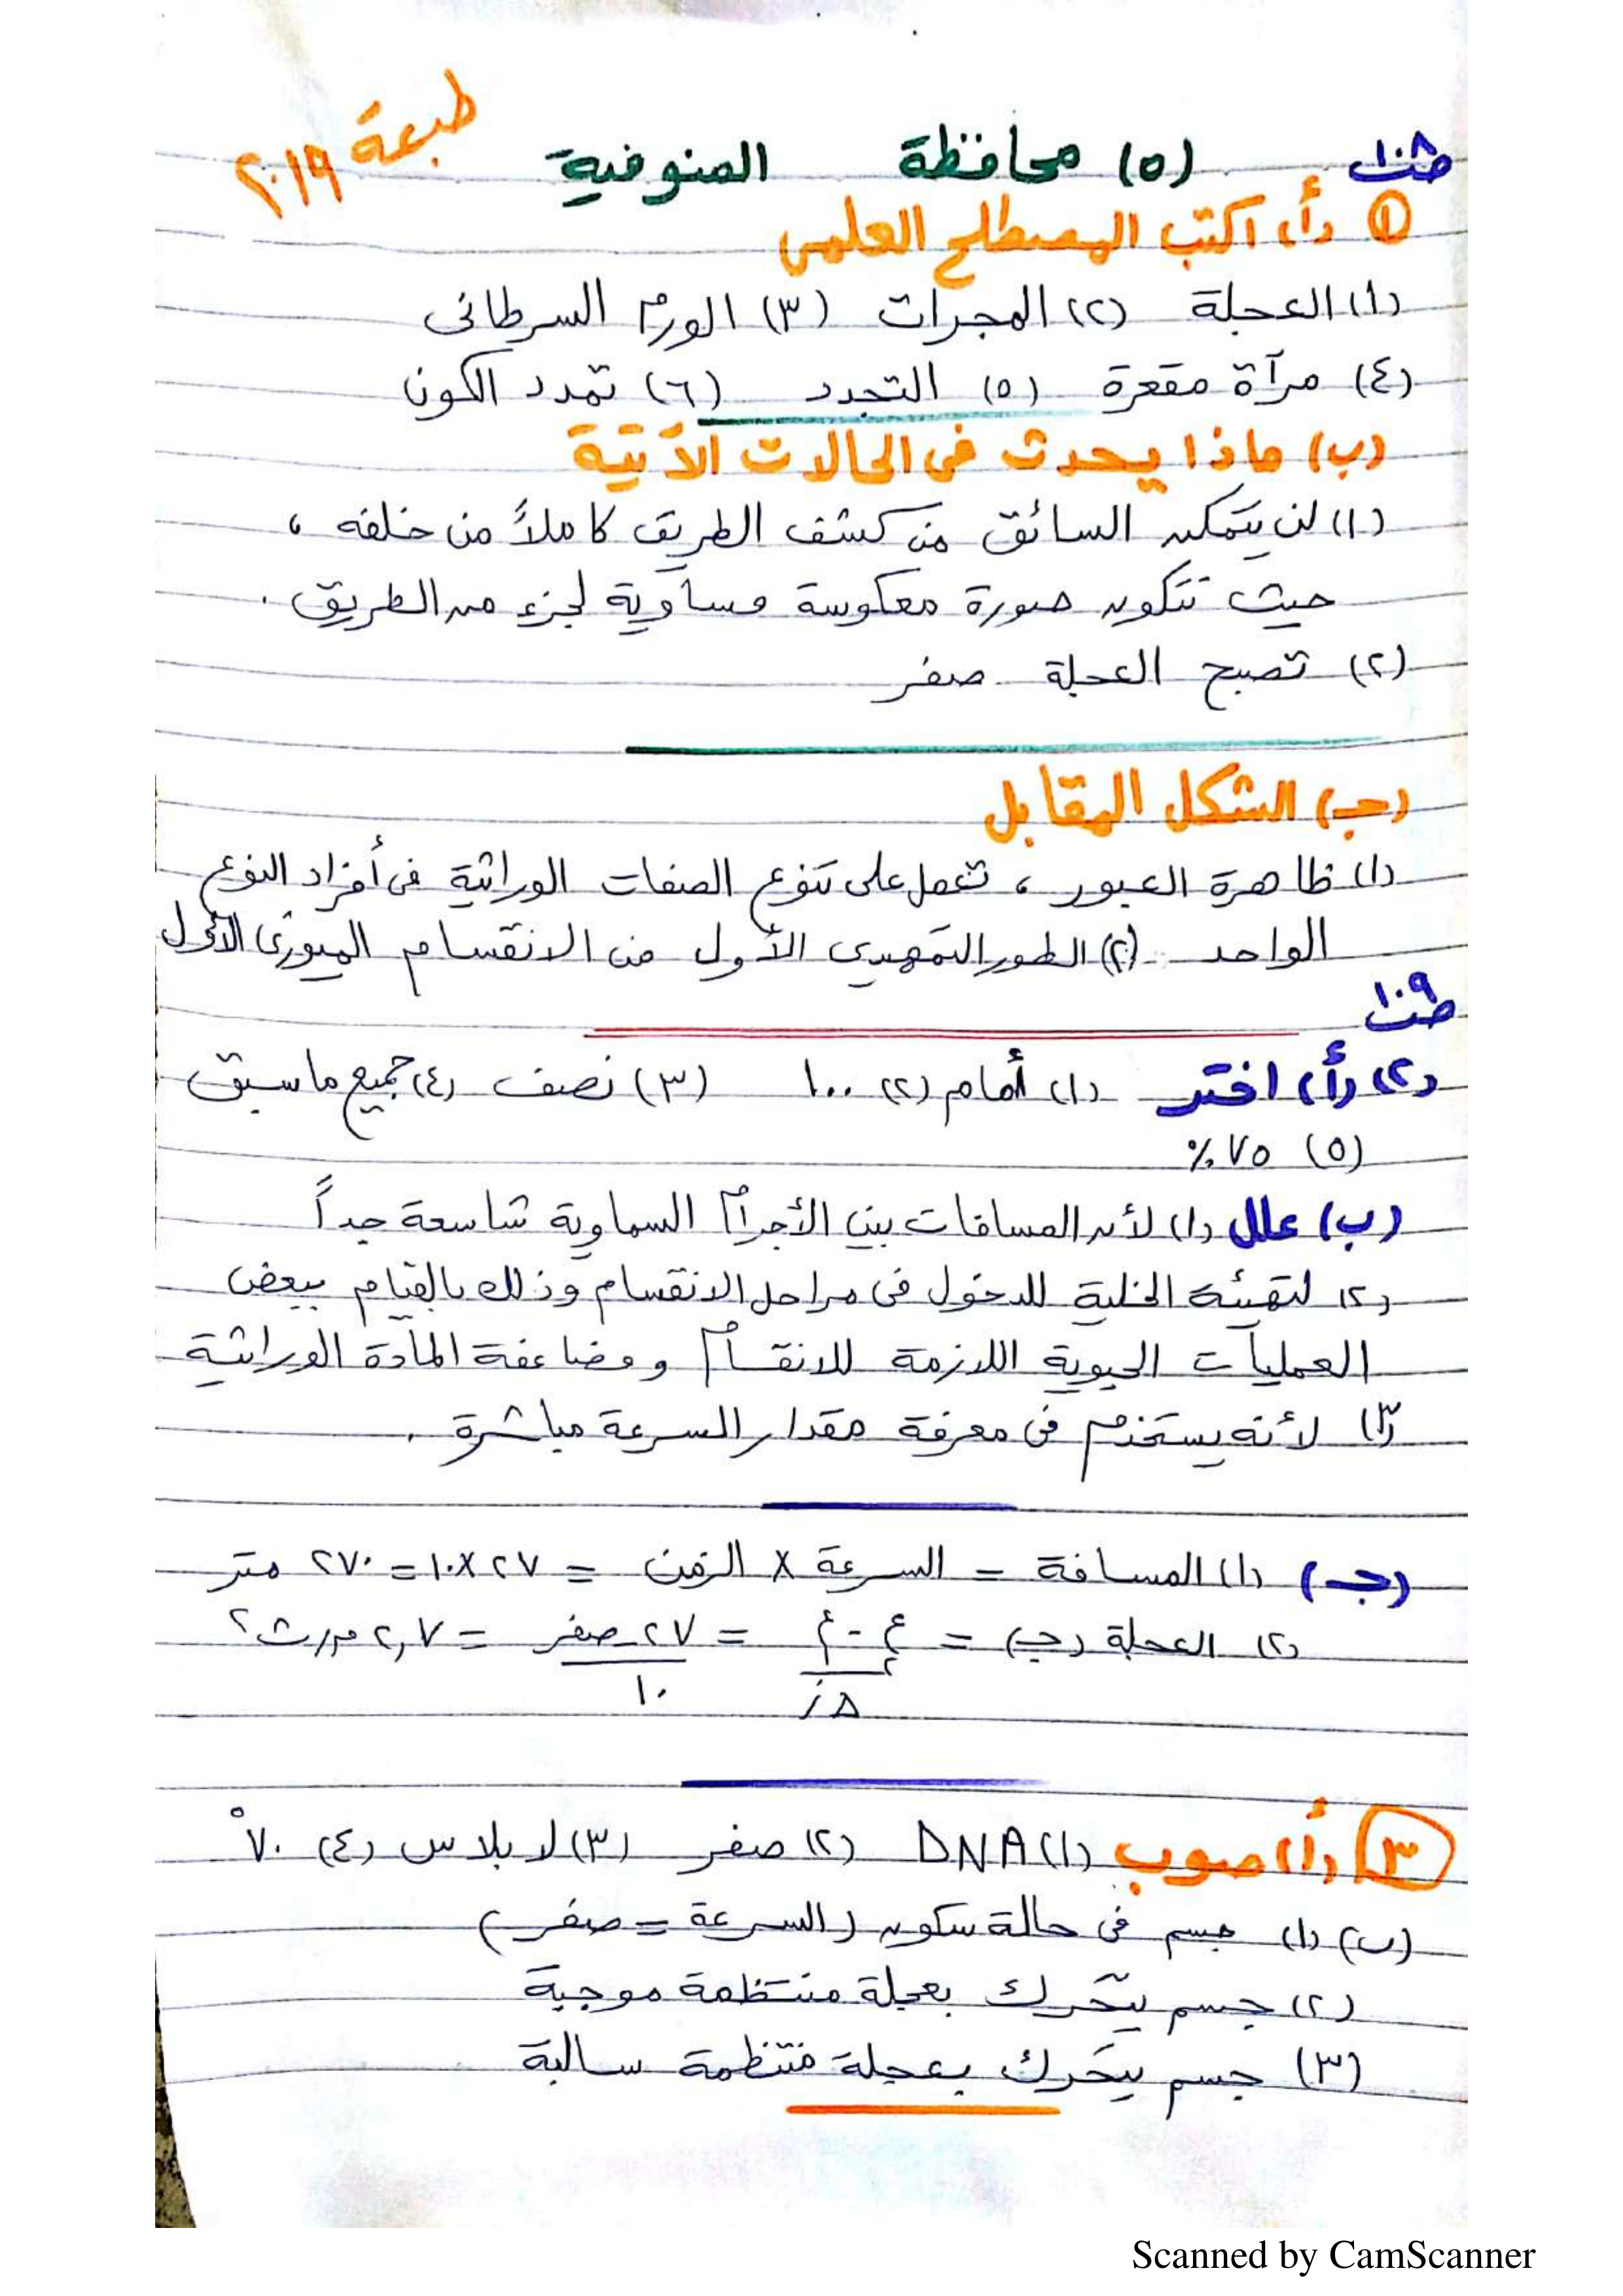 ص١٠٨ (٥) محافظة المنوفية طبعة ٢٠١٩
① (أ) اكتب المصطلح العلمى
(١) العجلة (٢) المجرات (٣) الورم السرطانى
(٤) مرآة مقعرة (٥) التجدد (٦) تمدد الكون
(ب) ماذا يحدث فى الحالات الآتية
(١) لن يتمكن السائق من كشف الطريق كاملاً من خلفه ،
حيث تتكون صورة معكوسة مساوية لجزء من الطريق .
(٢) تصبح العجلة صفر
(جـ) الشكل المقابل
(١) ظاهرة العبور ، تعمل على تنوع الصفات الوراثية فى أفراد النوع
الواحد (٢) الطور التمهيدى الأول من الانقسام الميوزى الأول
ص١٠٩
(٢) (أ) اختر (١) أمام (٢) ١٠٠ (٣) نصف (٤) جميع ما سبق
(٥) ٧٥ %
(ب) علل (١) لأن المسافات بين الأجرام السماوية شاسعة جداً
(٢) لتهيئة الخلية للدخول فى مراحل الانقسام وذلك بالقيام ببعض
العمليات الحيوية اللازمة للانقسام ومضاعفة المادة الوراثية
(٣) لأنه يستخدم فى معرفة مقدار السرعة مباشرة .
(جـ) (١) المسافة = السرعة × الزمن = ٢٧ × ١٠ = ٢٧٠ متر
(٢) العجلة (جـ) = ع٢ - ع١ / Δز = ٢٧ - صفر / ١٠ = ٢,٧ م/ث٢
٣ (أ) صوب (١) DNA (٢) صفر (٣) لابلاس (٤) ٧٠°
(ب) (١) جسم فى حالة سكون (السرعة = صفر)
(٢) جسم يتحرك بعجلة منتظمة موجبة
(٣) جسم يتحرك بعجلة منتظمة سالبة
Scanned by CamScanner